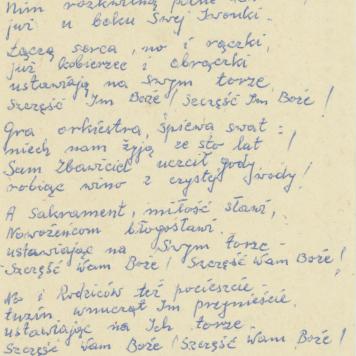 Nim rozkwitną polne
już u boku Swej Iwonki.
Łączą serca, no i rączki,
już kobierzec i obrączki
ustawiają na Swym torze
Szczęść Im Boże! Szczęść Im Boże!
Gra orkiestra, śpiewa swat:
niech nam żyją ze sto lat!
Sam Zbawiciel uczcił gody,
robiąc wino z czystej wody!
A Sakrament, miłość sławi,
Nowożeńcom błogosławi.
ustawiając na Swym torze -
Szczęść Wam Boże! Szczęść Wam Boże!
No i Rodziców też pocieszcie -
tuzin wnucząt Im przynieście.
ustawiając na Ich torze -
Szczęść Wam Boże! Szczęść Wam Boże!